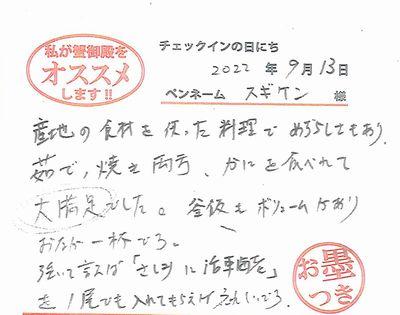 私が蟹御殿を
オススメ
します!!
チェックインの日にち
2022 年 9月 13日
ペンネーム スギケン 様
産地の食材を使った料理で めずらしてもあり
茹で、焼き両方、かにを食べれて
大満足でした。釜飯もボリュームがあり
おなか一杯です。
強いて言えば「さしみに活車
を1尾でも入れてもらえれば うれしいです。
お墨
つき